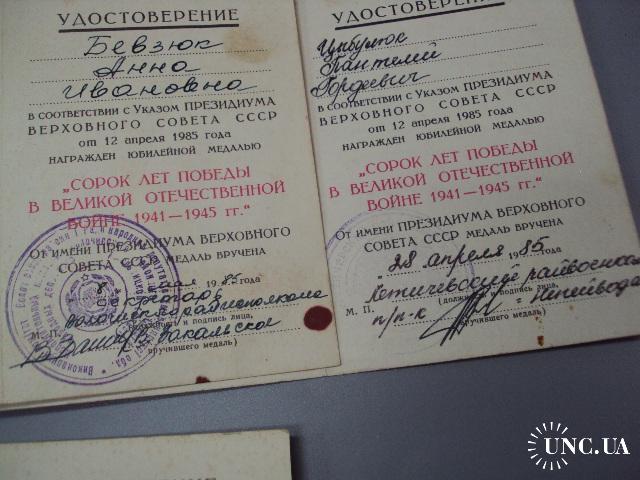 УДОСТОВЕРЕНИЕ
Бевзюк
Анна
Ивановна
В СООТВЕТСТВИИ С УКАЗОМ ПРЕЗИДИУМА
ВЕРХОВНОГО СОВЕТА СССР
от 12 апреля 1985 года
НАГРАЖДЕН ЮБИЛЕЙНОЙ МЕДАЛЬЮ
„СОРОК ЛЕТ ПОБЕДЫ
В ВЕЛИКОЙ ОТЕЧЕСТВЕННОЙ
ВОЙНЕ 1941—1945 гг.“
От имени ПРЕЗИДИУМА ВЕРХОВНОГО
СОВЕТА СССР МЕДАЛЬ ВРУЧЕНА
8 мая 1985 года
Секретарь
райисполкома
М. П. (должность и подпись лица,
вручившего медаль)
УДОСТОВЕРЕНИЕ
Цибулюк
Пантелей
Гордеевич
В СООТВЕТСТВИИ С УКАЗОМ ПРЕЗИДИУМА
ВЕРХОВНОГО СОВЕТА СССР
от 12 апреля 1985 года
НАГРАЖДЕН ЮБИЛЕЙНОЙ МЕДАЛЬЮ
„СОРОК ЛЕТ ПОБЕДЫ
В ВЕЛИКОЙ ОТЕЧЕСТВЕННОЙ
ВОЙНЕ 1941—1945 гг.“
От имени ПРЕЗИДИУМА ВЕРХОВНОГО
СОВЕТА СССР МЕДАЛЬ ВРУЧЕНА
„28 апреля 1985
Летичевский райвоенком
М. П. (должность и подпись лица,
п/п-к Непейвода
вручившего медаль)
UNC.UA